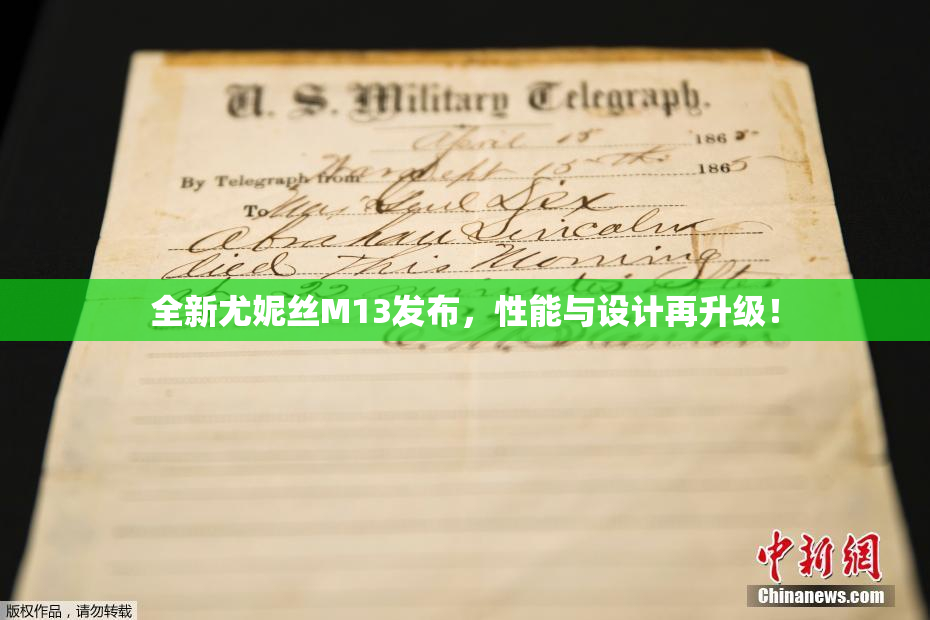 U. S. Military Telegraph.
April 15 1865
By Telegraph from War Dept 15th 1865
To Maj Genl Dix
Abraham Lincoln
died This Morning
at 22 minutes after
全新尤妮丝M13发布，性能与设计再升级！
E. M. Stanton
中新网
Chinanews.com
版权作品，请勿转载